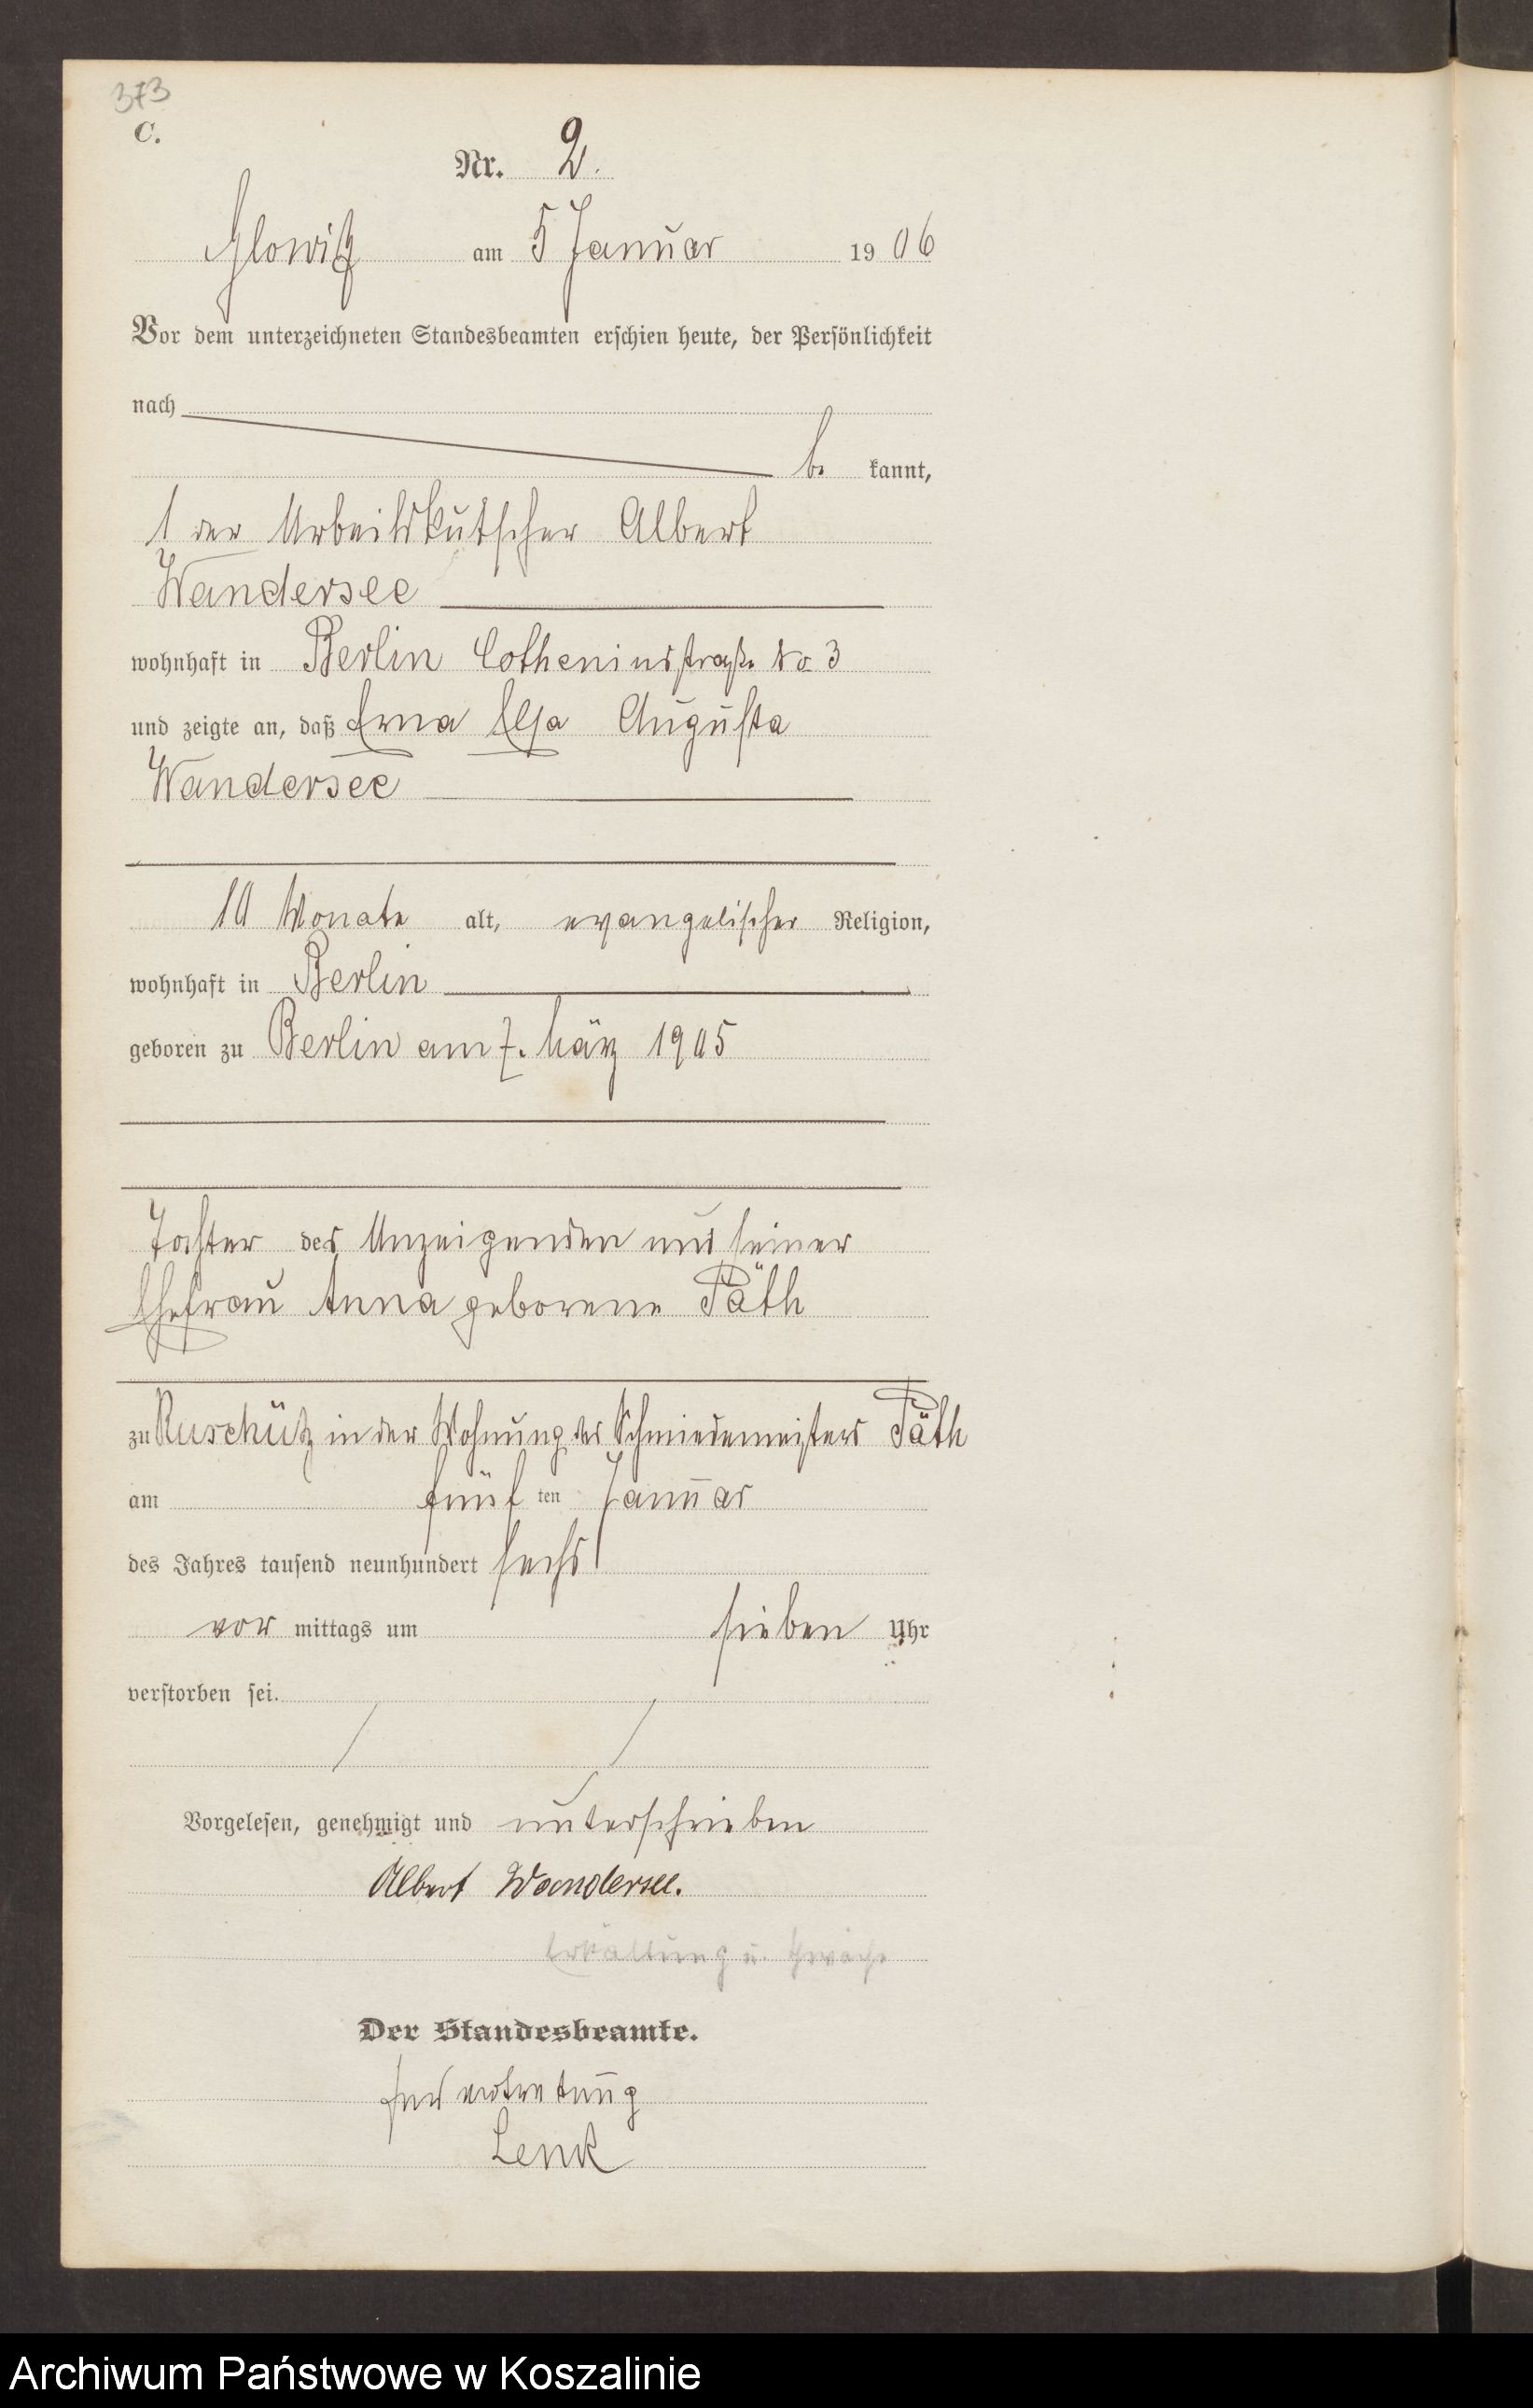 373
C.
Nr. 2.
Glowitz am 5 Januar 1906
Vor dem unterzeichneten Standesbeamten erschien heute, der Persönlichkeit
nach
be kannt,
1 der Arbeitskutscher Albert
Wandersee
wohnhaft in Berlin Cotheniusstraße No 3
und zeigte an, daß Erna Elsa Augusta
Wandersee
10 Monate alt, evangelischer Religion,
wohnhaft in Berlin
geboren zu Berlin am 7. März 1905
Tochter des Anzeigenden und seiner
Ehefrau Anna geborene Päth
zu Ruschütz in der Wohnung des Schmiedemeisters Päth
am fünf ten Januar
des Jahres tausend neunhundert sechs
vor mittags um sieben Uhr
verstorben sei.
Vorgelesen, genehmigt und unterschrieben
Albert Wandersee.
Erkältung u.
Der Standesbeamte.
In Vertretung
Lenk
Archiwum Państwowe w Koszalinie